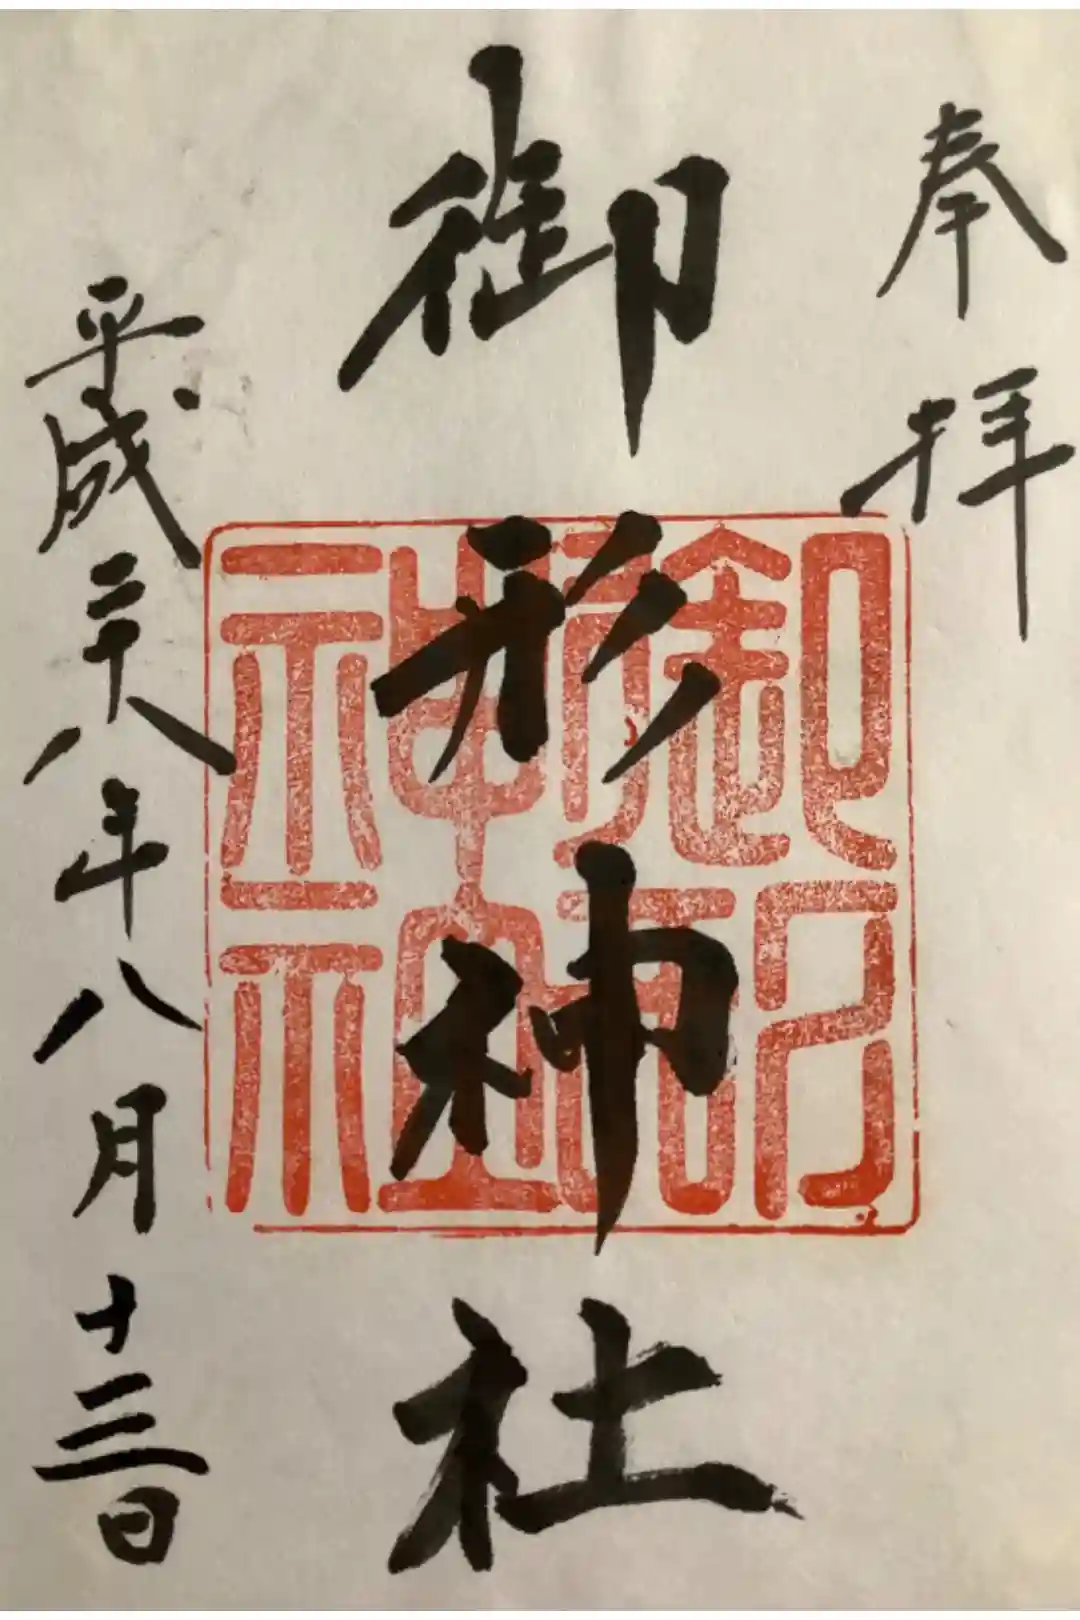 奉拝
御形神社
御形神社印
平成二十八年八月十三日